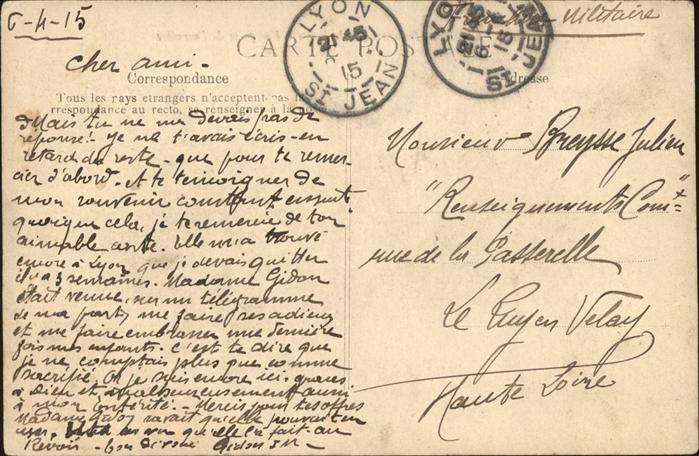 6-4-15
Franchise Militaire
LYON
ST JEAN
15
LYON
ST JEAN
CARTE POSTALE
Cher ami -
Correspondance
Adresse
Tous les pays étrangers n'acceptent pas la
respondance au recto, se renseigner à la
Mais tu ne me devais pas de
réponse! Je ne t'avais écris - en
retard du reste - que pour te remer
cier d'abord. Et te témoigner de
mon souvenir constant ensuite.
quoique cela, je te remercie de ton
aimable carte. Elle m'a trouvé
encore à Lyon que je devais quitter
il y a 3 semaines. Madame Gidon
était venue, sur un télégramme
de ma part, me faire ses adieux
et me faire embrasser une dernière
fois mes enfants. C'est te dire que
je ne comptais plus que comme
sacrifié. Or je suis encore ici, grâces
à Dieu et malheureusement aussi
à mon - Merci pour tes offres
Madame savait qu'elle pouvait en
user. qu'elle l'a fait. Au
Revoir - Gidon
Monsieur Breysse Julien
"Renseignements Com^x"
rue de la Passerelle
Le Puy en Velay
Haute Loire